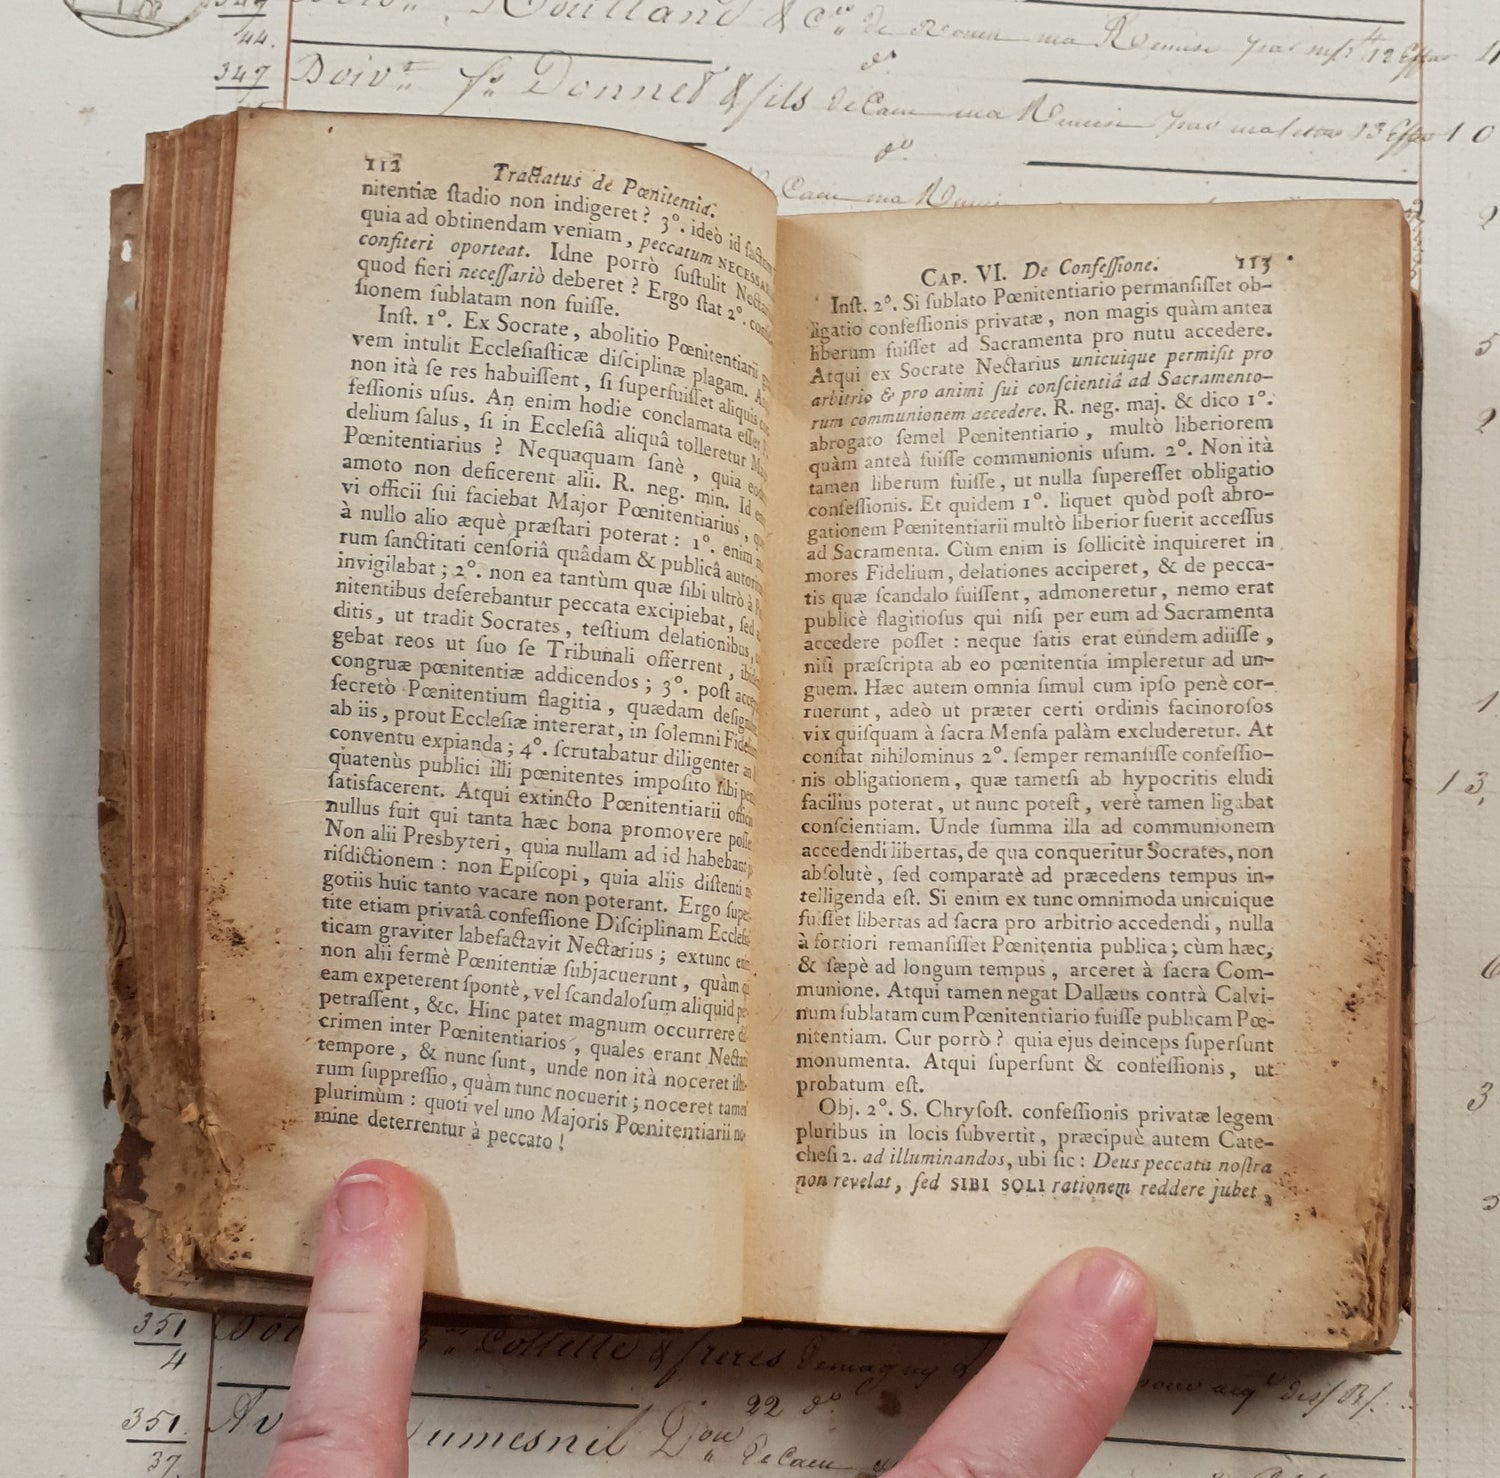 344
44.
Rouilland & Cie de Rouen ma Remise
347
Doivt. Donnet & fils de Caen ma Remise
do.
10
112
Tractatus de Pœnitentiâ.
nitentiæ ſtadio non indigeret ? 3°. ideò id
quia ad obtinendam veniam, peccatum
confiteri oporteat. Idne porrò ſuſtulit
quod fieri neceſſariò deberet ? Ergo ſtat 2°.
ſionem ſublatam non fuiſſe.
Inſt. 1°. Ex Socrate, abolitio Pœnitentiarii
vem intulit Eccleſiaſticæ diſciplinæ plagam.
non ità ſe res habuiſſent, ſi ſuperfuiſſet aliquis
feſſionis uſus. An enim hodie conclamata eſſet
delium ſalus, ſi in Eccleſiâ aliquâ tolleretur
Pœnitentiarius ? Nequaquam ſanè, quia
amoto non deficerent alii. R. neg. min. Id
vi officii ſui faciebat Major Pœnitentiarius,
à nullo alio æquè præſtari poterat : 1°. enim
rum ſanctitati cenſoriâ quâdam & publicâ
invigilabat ; 2°. non ea tantùm quæ ſibi ultrò à
nitentibus deferebantur peccata excipiebat, ſed
ditis, ut tradit Socrates, teſtium delationibus,
gebat reos ut ſuo ſe Tribunali offerrent,
congruæ pœnitentiæ addicendos ; 3°. poſt
ſecretò Pœnitentium flagitia, quædam
ab iis, prout Eccleſiæ intererat, in ſolemni
conventu expianda ; 4°. ſcrutabatur diligenter
quatenùs publici illi pœnitentes impoſito ſibi
ſatisfacerent. Atqui extincto Pœnitentiarii
nullus fuit qui tanta hæc bona promovere
Non alii Presbyteri, quia nullam ad id
riſdictionem : non Epiſcopi, quia aliis diſtenti
gotiis huic tanto vacare non poterant. Ergo
tite etiam privatâ confeſſione Diſciplinam
ticam graviter labefactavit Nectarius ; extunc
non alii fermè Pœnitentiæ ſubjacuerunt, quàm
eam expeterent ſpontè, vel ſcandaloſum aliquid
petraſſent, &c. Hinc patet magnum occurrere
crimen inter Pœnitentiarios, quales erant
tempore, & nunc ſunt, unde non ità noceret
rum ſuppreſſio, quàm tunc nocuerit ; noceret
plurimùm : quoti vel uno Majoris Pœnitentiarii
mine deterrentur à peccato !
CAP. VI. De Confeſſione.
113
Inſt. 2°. Si ſublato Pœnitentiario permanſiſſet ob-
ligatio confeſſionis privatæ, non magis quàm antea
liberum fuiſſet ad Sacramenta pro nutu accedere.
Atqui ex Socrate Nectarius unicuique permiſit pro
arbitrio & pro animi ſui conſcientiâ ad Sacramento-
rum communionem accedere. R. neg. maj. & dico 1°.
abrogato ſemel Pœnitentiario, multò liberiorem
quàm anteà fuiſſe communionis uſum. 2°. Non ità
tamen liberum fuiſſe, ut nulla ſupereſſet obligatio
confeſſionis. Et quidem 1°. liquet quòd poſt abro-
gationem Pœnitentiarii multò liberior fuerit acceſſus
ad Sacramenta. Cùm enim is ſollicitè inquireret in
mores Fidelium, delationes acciperet, & de pecca-
tis quæ ſcandalo fuiſſent, admoneretur, nemo erat
publicè flagitioſus qui niſi per eum ad Sacramenta
accedere poſſet : neque ſatis erat eúndem adiiſſe,
niſi præſcripta ab eo pœnitentia impleretur ad un-
guem. Hæc autem omnia ſimul cum ipſo penè cor-
ruerunt, adeò ut præter certi ordinis facinoroſos
vix quiſquam à ſacra Menſa palàm excluderetur. At
conſtat nihilominus 2°. ſemper remanſiſſe confeſſio-
nis obligationem, quæ tametſi ab hypocritis eludi
facilius poterat, ut nunc poteſt, verè tamen ligabat
conſcientiam. Unde ſumma illa ad communionem
accedendi libertas, de qua conqueritur Socrates, non
abſolutè, ſed comparatè ad præcedens tempus in-
telligenda eſt. Si enim ex tunc omnimoda unicuique
fuiſſet libertas ad ſacra pro arbitrio accedendi, nulla
à fortiori remanſiſſet Pœnitentia publica ; cùm hæc,
& ſæpè ad longum tempus, arceret à ſacra Com-
munione. Atqui tamen negat Dallæus contrà Calvi-
num ſublatam cum Pœnitentiario fuiſſe publicam Pœ-
nitentiam. Cur porrò ? quia ejus deinceps ſuperſunt
monumenta. Atqui ſuperſunt & confeſſionis, ut
probatum eſt.
Obj. 2°. S. Chryſoſt. confeſſionis privatæ legem
pluribus in locis ſubvertit, præcipuè autem Cate-
cheſi 2. ad illuminandos, ubi ſic : Deus peccata noſtra
non revelat, ſed SIBI SOLI rationem reddere jubet,
351
4
Collette & freres
22 do.
351.
37.
Dumesnil
de Caen